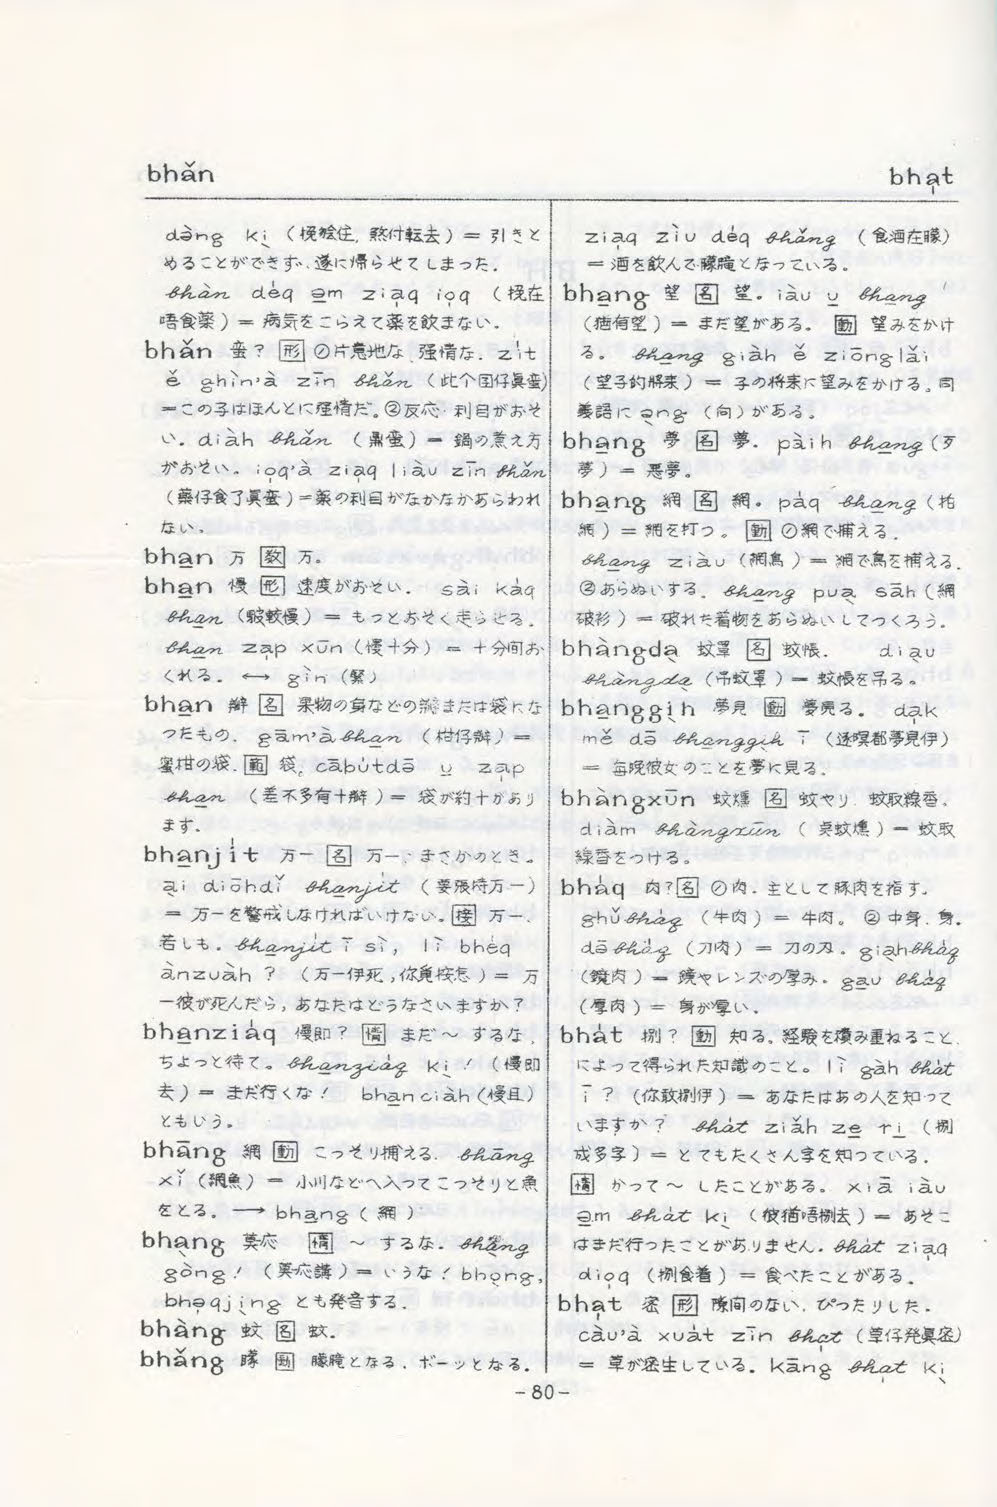 bhǎn
bha̍t
dàng kị̀ (挽繪住, 煞付転去) = 引きと
めることができず, 遂に帰らせてしまった.
bhàn déq a̱m zia̍q io̍q (挽在
唔食薬) = 病気をこらえて薬を飲まない.
bhǎn 蛮? 形 ①片意地な, 強情な. zı̍t
ě ghìn'à zīn bhǎn (此个囝仔眞蛮)
=この子はほんとに強情だ. ②反応·利目がおそ
い. diàh bhǎn (鼎蛮) = 鍋の煮え方
がおそい. io̍q'à zia̍q liàu zīn bhǎn
(薬仔食了眞蛮)=薬の利目がなかなかあらわれ
ない.
bha̱n 万 数 万.
bha̱n 慢 形 速度がおそい. sài kàq
bha̱n (駛較慢) = もっとおそく走らせる.
bha̱n za̍p xūn (慢十分) = 十分間お
くれる. ⟷ gìn (緊)
bha̱n 瓣 名 果物の身などの瓣または袋にな
ったもの. gām'à bha̱n (柑仔瓣) =
蜜柑の袋. 範 袋. cābútdə̄ u̱ za̍p
bha̱n (差不多有十瓣) = 袋が約十があり
ます.
bha̱njít 万一 名 万一, まさかのとき.
a̱i diōhdǐ bha̱njít (要張持万一)
= 万一を警戒しなければいけない. 接 万一.
若しも. bha̱njít ī sì, lì bhéq
ànzuàh ? (万一伊死, 你覓按怎) = 万
一彼が死んだら, あなたはどうなさいますか?
bha̱nziáq 慢即? 情 まだ〜するな,
ちょっと待て. bha̱nziáq kị̀ ! (慢即
去) = まだ行くな! bha̱nciàh (慢且)
ともいう.
bhāng 網 動 こっそり捕える. bhāng
xǐ (網魚) = 小川などへ入ってこっそりと魚
をとる. ⟶ bha̱ng (網)
bhạ̀ng 莫応 情 〜するな. bhạ̀ng
gòng! (莫応講) = いうな! bhọ̀ng,
bhə̣̀qjı̣̀ng とも発音する.
bhàng 蚊 名 蚊.
bhǎng 朦 動 朦朧となる, ボーッとなる.
zia̍q zìu déq bhǎng (食酒在朦)
= 酒を飲んで朦朧となっている.
bha̱ng 望 名 望. iàu u̱ bha̱ng
(猶有望) = まだ望がある. 動 望みをかけ
る. bha̱ng giàh ě ziōnglǎi
(望子的將来) = 子の将来に望みをかける. 同
義語に ə̱ng (向) がある.
bha̱ng 夢 名 夢. pàih bha̱ng (歹
夢) = 悪夢.
bha̱ng 網 名 網. páq bha̱ng (拍
網) = 網を打つ. 動 ①網で捕える.
bha̱ng ziàu (網鳥) = 網で鳥を捕える.
②あらぬいする. bha̱ng puạ̀ sāh (網
破衫) = 破れた着物をあらぬいしてつくろう.
bhàngdạ̀ 蚊罩 名 蚊帳. diạ̀u
bhàngdạ̀ (吊蚊罩) = 蚊帳を吊る.
bha̱nggị̀h 夢見 動 夢見る. da̍k
mě də̄ bha̱nggị̀h ī (逐暝都夢見伊)
= 毎晩彼女のことを夢に見る.
bhàngxūn 蚊燻 名 蚊やり, 蚊取線香.
diàm bhàngxūn (点蚊燻) = 蚊取
線香をつける.
bháq 肉? 名 ①肉. 主として豚肉を指す.
ghǔbháq (牛肉) = 牛肉. ②中身, 身.
də̄bháq (刀肉) = 刀の刃. giạ̀hbháq
(鏡肉) = 鏡やレンズの厚み. ga̱u bháq
(厚肉) = 身が厚い.
bhát 捌? 動 知る. 経験を積み重ねること
によって得られた知識のこと. lì gàh bhát
ī ? (你敢捌伊) = あなたはあの人を知って
いますか? bhát ziǎh ze̱ ri̱ (捌
成多字) = とてもたくさん字を知っている.
情 かつて〜したことがある. xiā iàu
a̱m bhát kị̀ (彼猶唔捌去) = あそこ
はまだ行ったことがありません. bhát zia̍q
dio̍q (捌食着) = 食べたことがある.
bha̍t 密 形 隙間のない, ぴったりした.
càu'à xuát zīn bha̍t (草仔発眞密)
= 草が密生している. kāng bha̍t kị̀
-80-